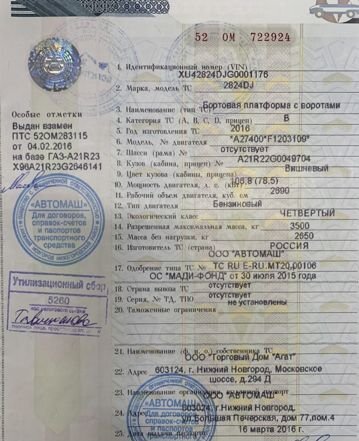 52 ОМ 722924
1. Идентификационный номер (VIN) XU42824DJG0001176
2. Марка, модель ТС 2824DJ
3. Наименование (тип ТС) Бортовая платформа с воротами
4. Категория ТС (A, B, C, D, прицеп) B
5. Год изготовления ТС 2016
6. Модель, № двигателя *A27400*F1203109*
7. Шасси (рама) № отсутствует
8. Кузов (кабина, прицеп) № A21R22G0049704
9. Цвет кузова (кабины, прицепа) Вишневый
10. Мощность двигателя, л. с. (кВт) 106.8 (78.5)
11. Рабочий объем двигателя, куб. см 2690
12. Тип двигателя Бензиновый
13. Экологический класс ЧЕТВЕРТЫЙ
14. Разрешенная максимальная масса, кг 3500
15. Масса без нагрузки, кг 2650
16. Изготовитель ТС (страна) РОССИЯ
ООО "АВТОМАШ"
17. Одобрение типа ТС № ТС RU E-RU.MT20.00106
ОС "МАДИ-ФОНД" от 30 июля 2015 года
18. Страна вывоза ТС отсутствует
19. Серия, № ТД, ТПО отсутствует
20. Таможенные ограничения не установлены
21. Наименование (ф. и. о.) собственника ТС
ООО "Торговый Дом "Агат"
22. Адрес 603124, г. Нижний Новгород, Московское
шоссе, д.294 Д
23. Наименование организации
ООО "АВТОМАШ"
24. Адрес 603024, г.Нижний Новгород,
ул.Большая Печерская, дом 77,пом.4
25. Дата выдачи паспорта 16 марта 2016 г.
Особые отметки
Выдан взамен
ПТС 52ОМ283115
от 04.02.2016
на базе ГАЗ-A21R23
X96A21R23G2646141
«АВТОМАШ»
Для договоров,
справок-счетов
и паспортов
транспортного
средства
Утилизационный сбор
5260
«АВТОМАШ»
Для договоров
справок-счетов